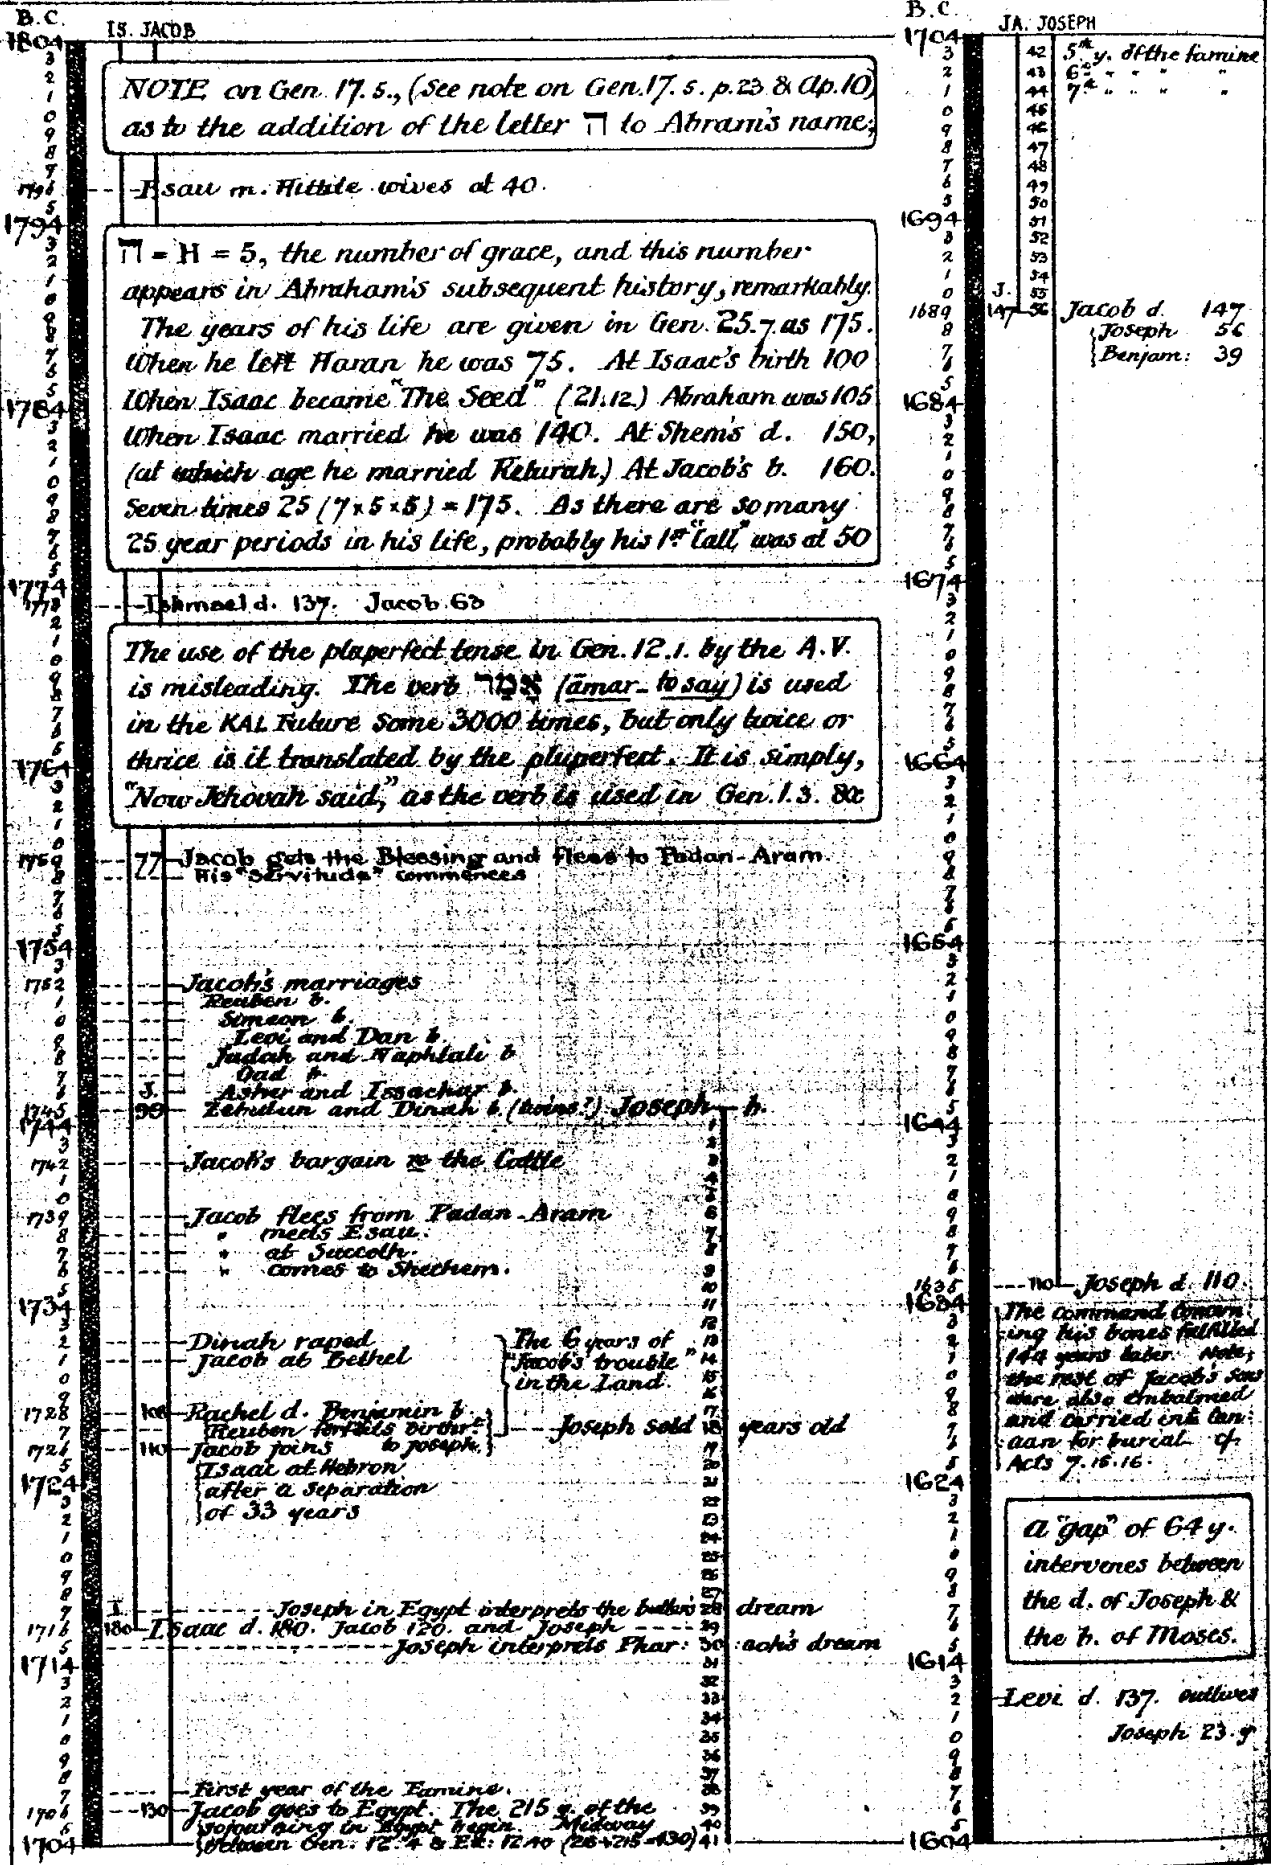 B.C.
IS. JACOB
1804
3
2
1
0
9
8
7
1796
5
1794
3
2
1
0
9
8
7
6
5
1784
3
2
1
0
9
8
7
6
5
1774
1773
2
1
0
9
8
7
6
5
1764
3
2
1
0
1759
8
7
6
5
1754
3
1752
1
0
9
8
7
6
1745
1744
3
1742
1
0
1739
8
7
6
5
1734
3
2
1
0
9
1728
7
1726
5
1724
3
2
1
0
9
8
7
1716
5
1714
3
2
1
0
9
8
7
1706
5
1704
NOTE on Gen. 17. 5., (See note on Gen. 17. 5. p. 23 & Ap. 10)
as to the addition of the letter ה to Abram's name;
Esau m. Hittite wives at 40.
ה = H = 5, the number of grace, and this number
appears in Abraham's subsequent history, remarkably.
The years of his life are given in Gen. 25.7. as 175.
When he left Haran he was 75. At Isaac's birth 100
When Isaac became "The Seed" (21.12.) Abraham was 105
When Isaac married he was 140. At Shem's d. 150,
(at which age he married Keturah.) At Jacob's b. 160.
Seven times 25 (7 x 5 x 5) = 175. As there are so many
25 year periods in his life, probably his 1st "Call," was at 50
Ishmael d. 137. Jacob 63
The use of the pluperfect tense in Gen. 12.1. by the A.V.
is misleading. The verb אָמַר (āmar - to say) is used
in the KAL Future some 3000 times, but only twice or
thrice is it translated by the pluperfect. It is simply,
"Now Jehovah said," as the verb is used in Gen. 1. 3. &c
77 Jacob gets the Blessing and flees to Padan-Aram.
His "Servitude" commences
Jacob's marriages
Reuben b.
Simeon b.
Levi and Dan b.
Judah and Naphtali b
Gad b.
J. Asher and Issachar b.
90 Zebulun and Dinah b. (twins?) Joseph b.
Jacob's bargain re the Cattle
Jacob flees from Padan-Aram
" meets Esau.
" at Succoth.
" comes to Shechem.
Dinah raped
Jacob at Bethel
The 6 years of
"Jacob's trouble"
in the Land.
Rachel d. Benjamin b.
Reuben forfeits birthr:t
to Joseph.
Joseph sold 18 years old
110 Jacob joins
Isaac at Hebron
after a separation
of 33 years
I. Joseph in Egypt interprets the butler's 28 dream
180 Isaac d. 180. Jacob 120. and Joseph 29
Joseph interprets Phar: 30 :aoh's dream
First year of the Famine.
130 Jacob goes to Egypt. The 215 y. of the
sojourning in Egypt begin. Midway
between Gen. 12. 4 & Ex: 12.40 (215+215=430) 41
B.C.
JA. JOSEPH
1704
1694
1689
1684
1674
1664
1654
1644
1635
1634
1624
1614
1604
42 5th y. of the famine
43 6th " " " "
44 7th " " " "
45
46
47
48
49
50
51
52
53
54
J. 55
147 56 Jacob d. 147
Joseph 56
Benjam: 39
110 Joseph d. 110.
The command concern:
ing his bones fulfilled
144 years later. Note,
the rest of Jacob's sons
were also embalmed
and carried into Can:
aan for burial cf.
Acts 7.15.16.
A "gap" of 64 y.
intervenes between
the d. of Joseph &
the b. of Moses.
Levi d. 137. outlives
Joseph 23. y